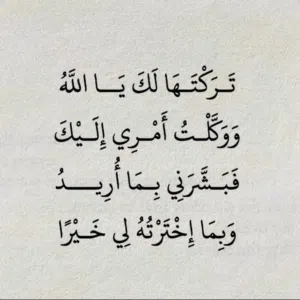 تَـرَكْتَـهَا لَكَ يَـا اللَّهُ
وَوَكَّلْـتُ أَمْـرِي إِلَـيْكَ
فَبَـشَّرَنِي بِـمَا أُرِيـــدُ
وَبِمَا إِخْتَرْتُهُ لِي خَـيْرًا